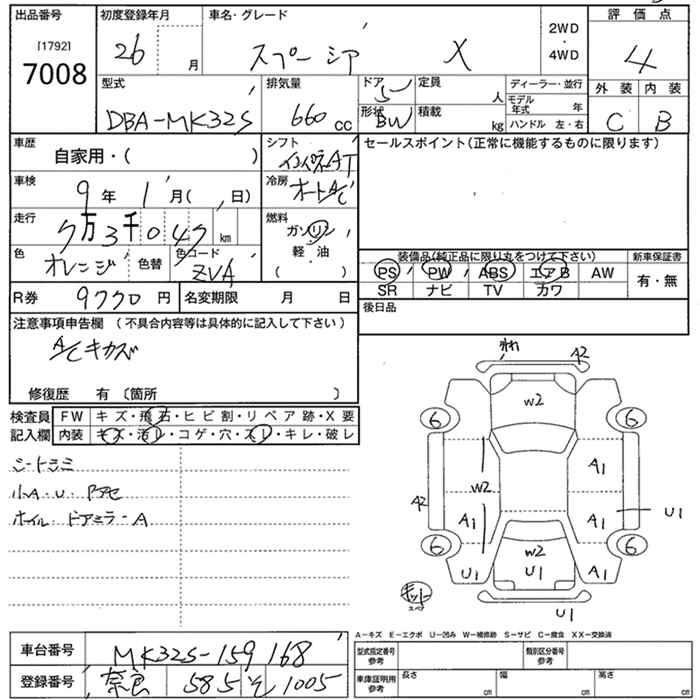 出品番号 初度登録年月 車名・グレード 2WD・4WD 評価点
[1792] 7008 26 月 スペーシア X 4
型式 排気量 ドア 5 定員 人 ディーラー・並行 外装 内装
DBA-MK32S 660 cc 形状 BW 積載 kg モデル年式 年 ハンドル 左・右 C B
車歴 自家用・( ) シフト インパネAT セールスポイント(正常に機能するものに限ります)
車検 9年 1月( 日) 冷房 オートA/C
走行 7万3千047 km 燃料 ガソリン
軽・油
( )
色 オレンジ 色替 色コード ZVA
装備品(純正品に限り丸をつけて下さい) 新車保証書
PS PW ABS エアB AW 有・無
SR ナビ TV カワ
R券 9770円 名変期限 月 日 後日品
注意事項申告欄 (不具合内容等は具体的に記入して下さい)
A/Cキカズ
修復歴 有 〔箇所 〕
検査員 FW キズ・飛石・ヒビ割・リペア跡・X要
記入欄 内装 キズ・汚レ・コゲ・穴・スレ・キレ・破レ
シートシミ
小A・U
ホイル・ドアミラーA
A2
W2
6 6
A1
W2
A2 A1 A1 U1
6 W2 6
U1 U1 A1
キット
スペア
U1
A-キズ E-エクボ U-凹み W-補修跡 S-サビ C-腐食 XX-交換済
車台番号 MK32S-159168 型式指定番号 参考 類別区分番号 参考
登録番号 奈良 585 そ 1005 車庫証明用 参考 長さ cm 幅 cm 高さ cm